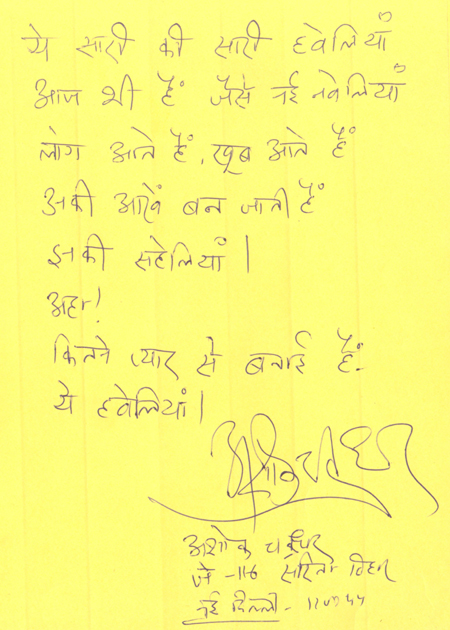 ये सारी की सारी हवेलियाँ
आज भी हैं जैसे नई नवेलियाँ
लोग आते हैं, खूब आते हैं
उनकी आँखें बन जाती हैं
इनकी सहेलियां।
अहा!
कितने प्यार से बनाई हैं
ये हवेलियां।
अशोक चक्रधर
अशोक चक्रधर
जे -116 सरिता विहार
नई दिल्ली -